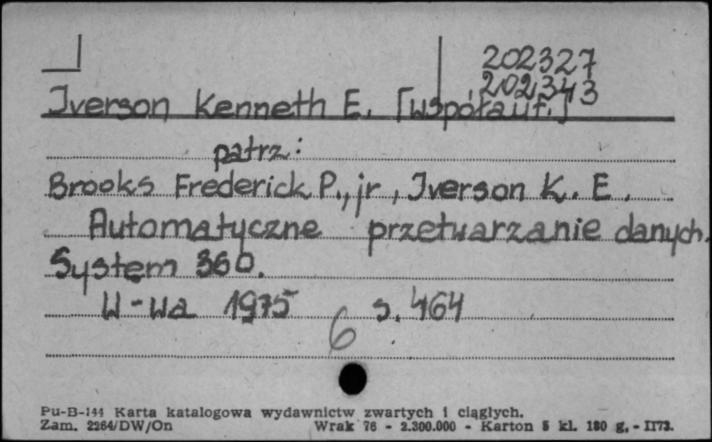 202327
202343
Iverson Kenneth E. [współaut.]
patrz:
Brooks Frederick P., jr, Iverson K. E.
Automatyczne przetwarzanie danych.
System 360.
W-wa 1975 s. 464
6
Pu-B-144 Karta katalogowa wydawnictw zwartych i ciągłych.
Zam. 2264/DW/On Wrak 76 - 2.300.000 - Karton 5 kl. 180 g. - II73.